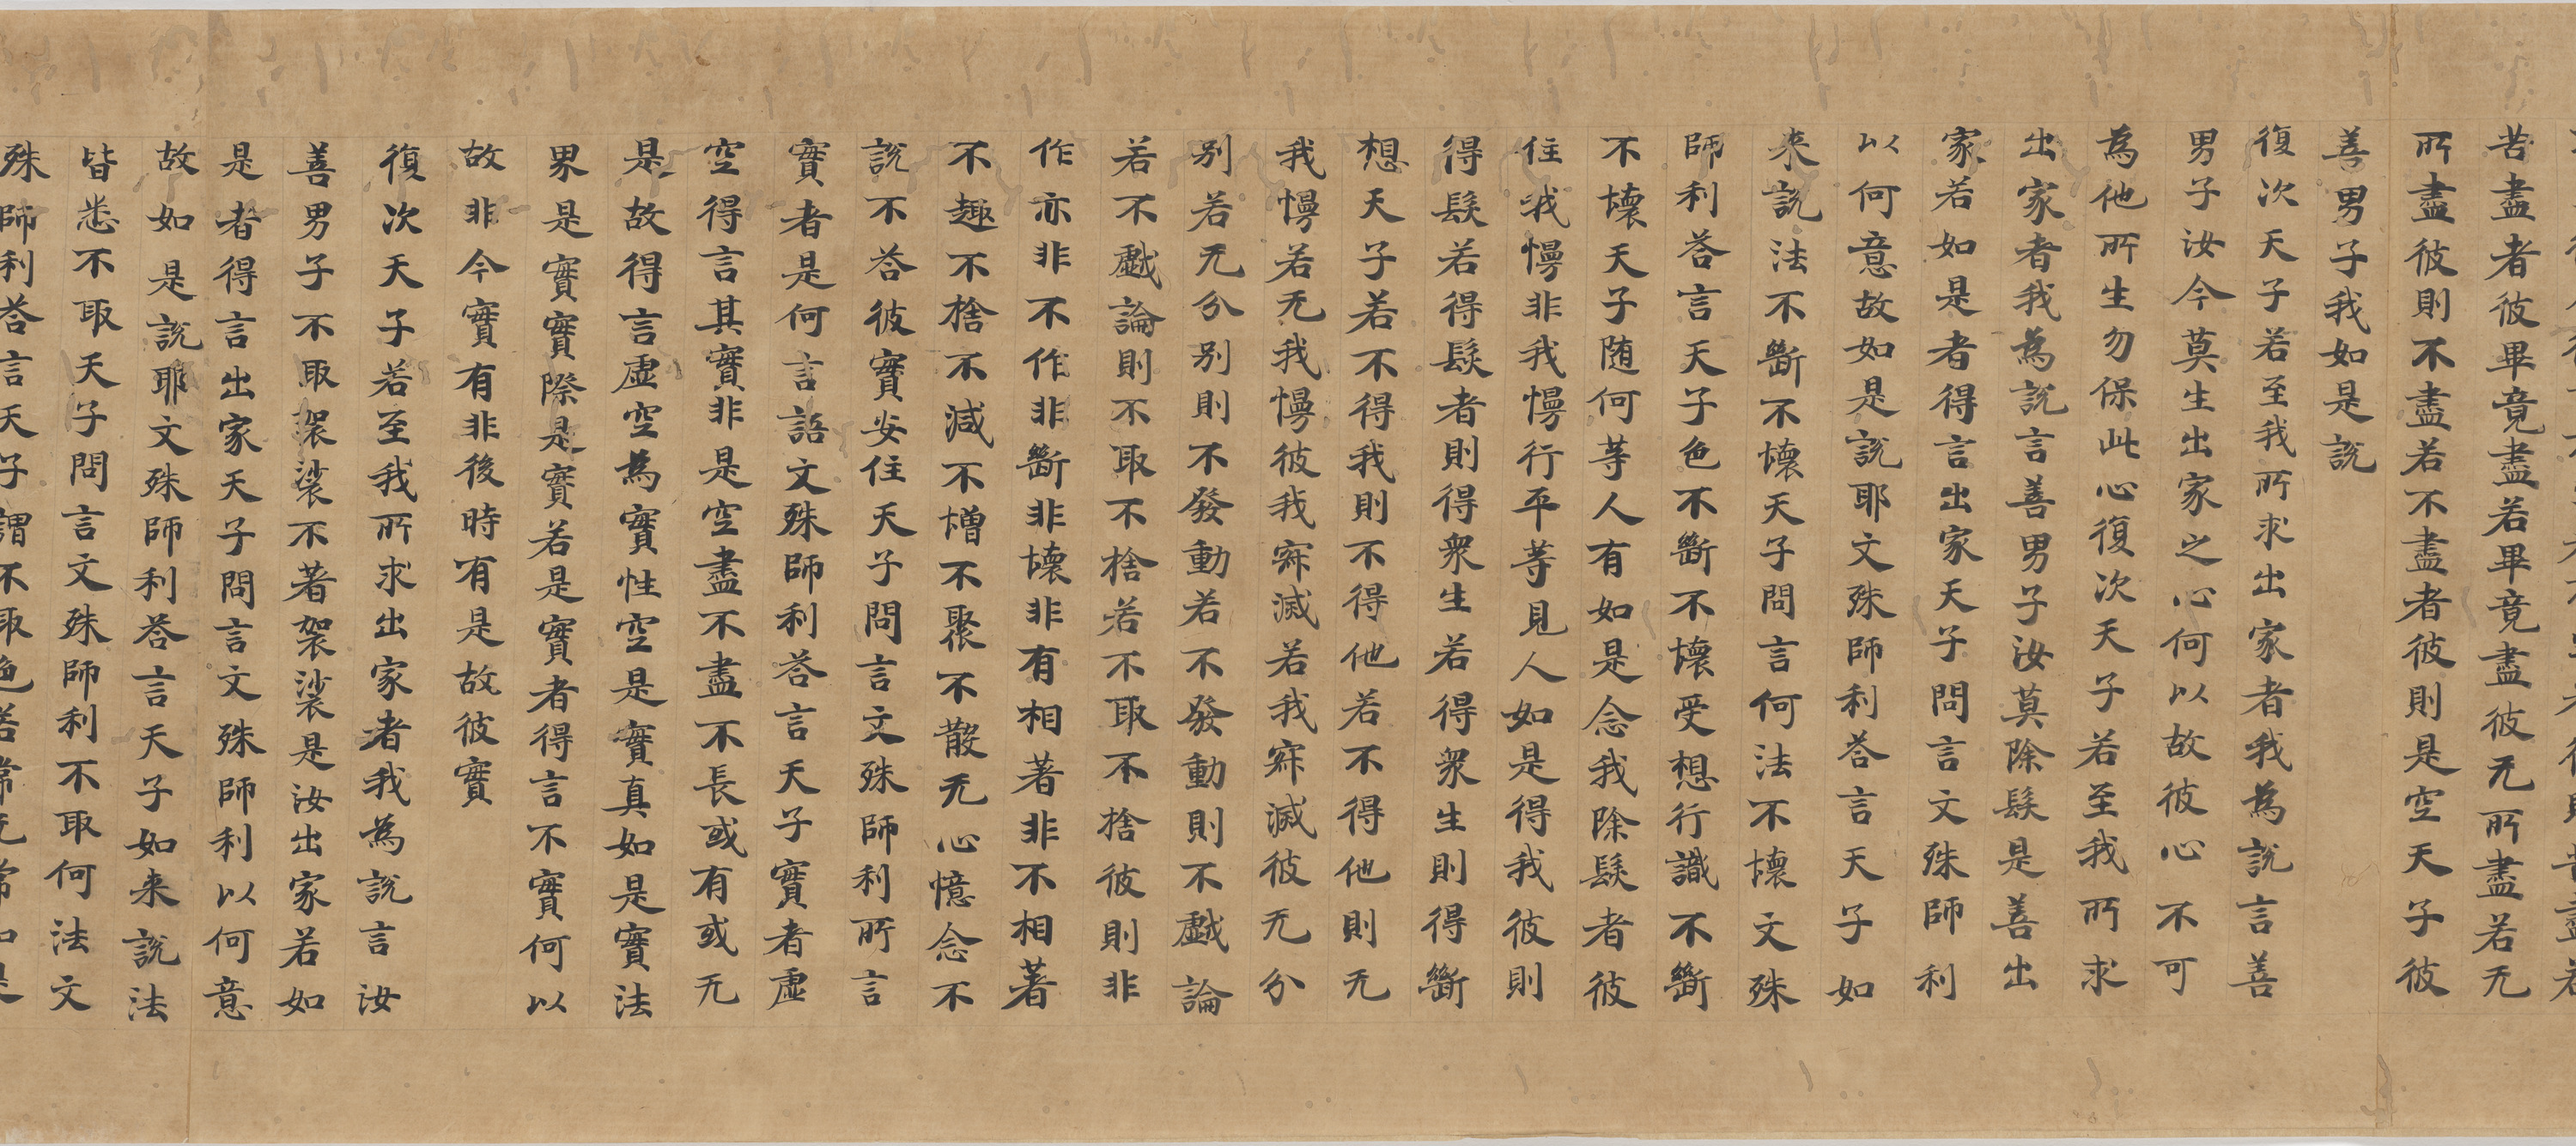 苦盡者彼畢竟盡若畢竟盡彼无所盡若无
所盡彼則不盡若不盡者彼則是空天子彼
善男子我如是說
復次天子若至我所求出家者我為說言善
男子汝今莫生出家之心何以故彼心不可
為他所生勿保此心復次天子若至我所求
出家者我為說言善男子汝莫除髮是善出
家若如是者得言出家天子問言文殊師利
以何意故如是說耶文殊師利荅言天子如
来說法不斷不壞天子問言何法不壞文殊
師利荅言天子色不斷不壞受想行識不斷
不壞天子随何等人有如是念我除髮者彼
住我慢非我慢行平等見人如是得我彼則
得髮若得髮者則得衆生若得衆生則得斷
想天子若不得我則不得他若不得他則无
我慢若无我慢彼我寂滅若我寂滅彼无分
别若无分别則不發動若不發動則不戲論
若不戲論則不取不捨若不取不捨彼則非
作亦非不作非斷非壞非有相著非不相著
不趣不捨不減不増不聚不散无心憶念不
說不荅彼實安住天子問言文殊師利所言
實者是何言語文殊師利荅言天子實者虚
空得言其實非是空盡不盡不長或有或无
是故得言虚空為實性空是實真如是實法
界是實實際是實若是實者得言不實何以
故非今實有非後時有是故彼實
復次天子若至我所求出家者我為說言汝
善男子不取袈裟不著袈裟是汝出家若如
是者得言出家天子問言文殊師利以何意
故如是說耶文殊師利荅言天子如来說法
皆悉不取天子問言文殊師利不取何法文
殊師利荅言天子謂不取色若常无常如是